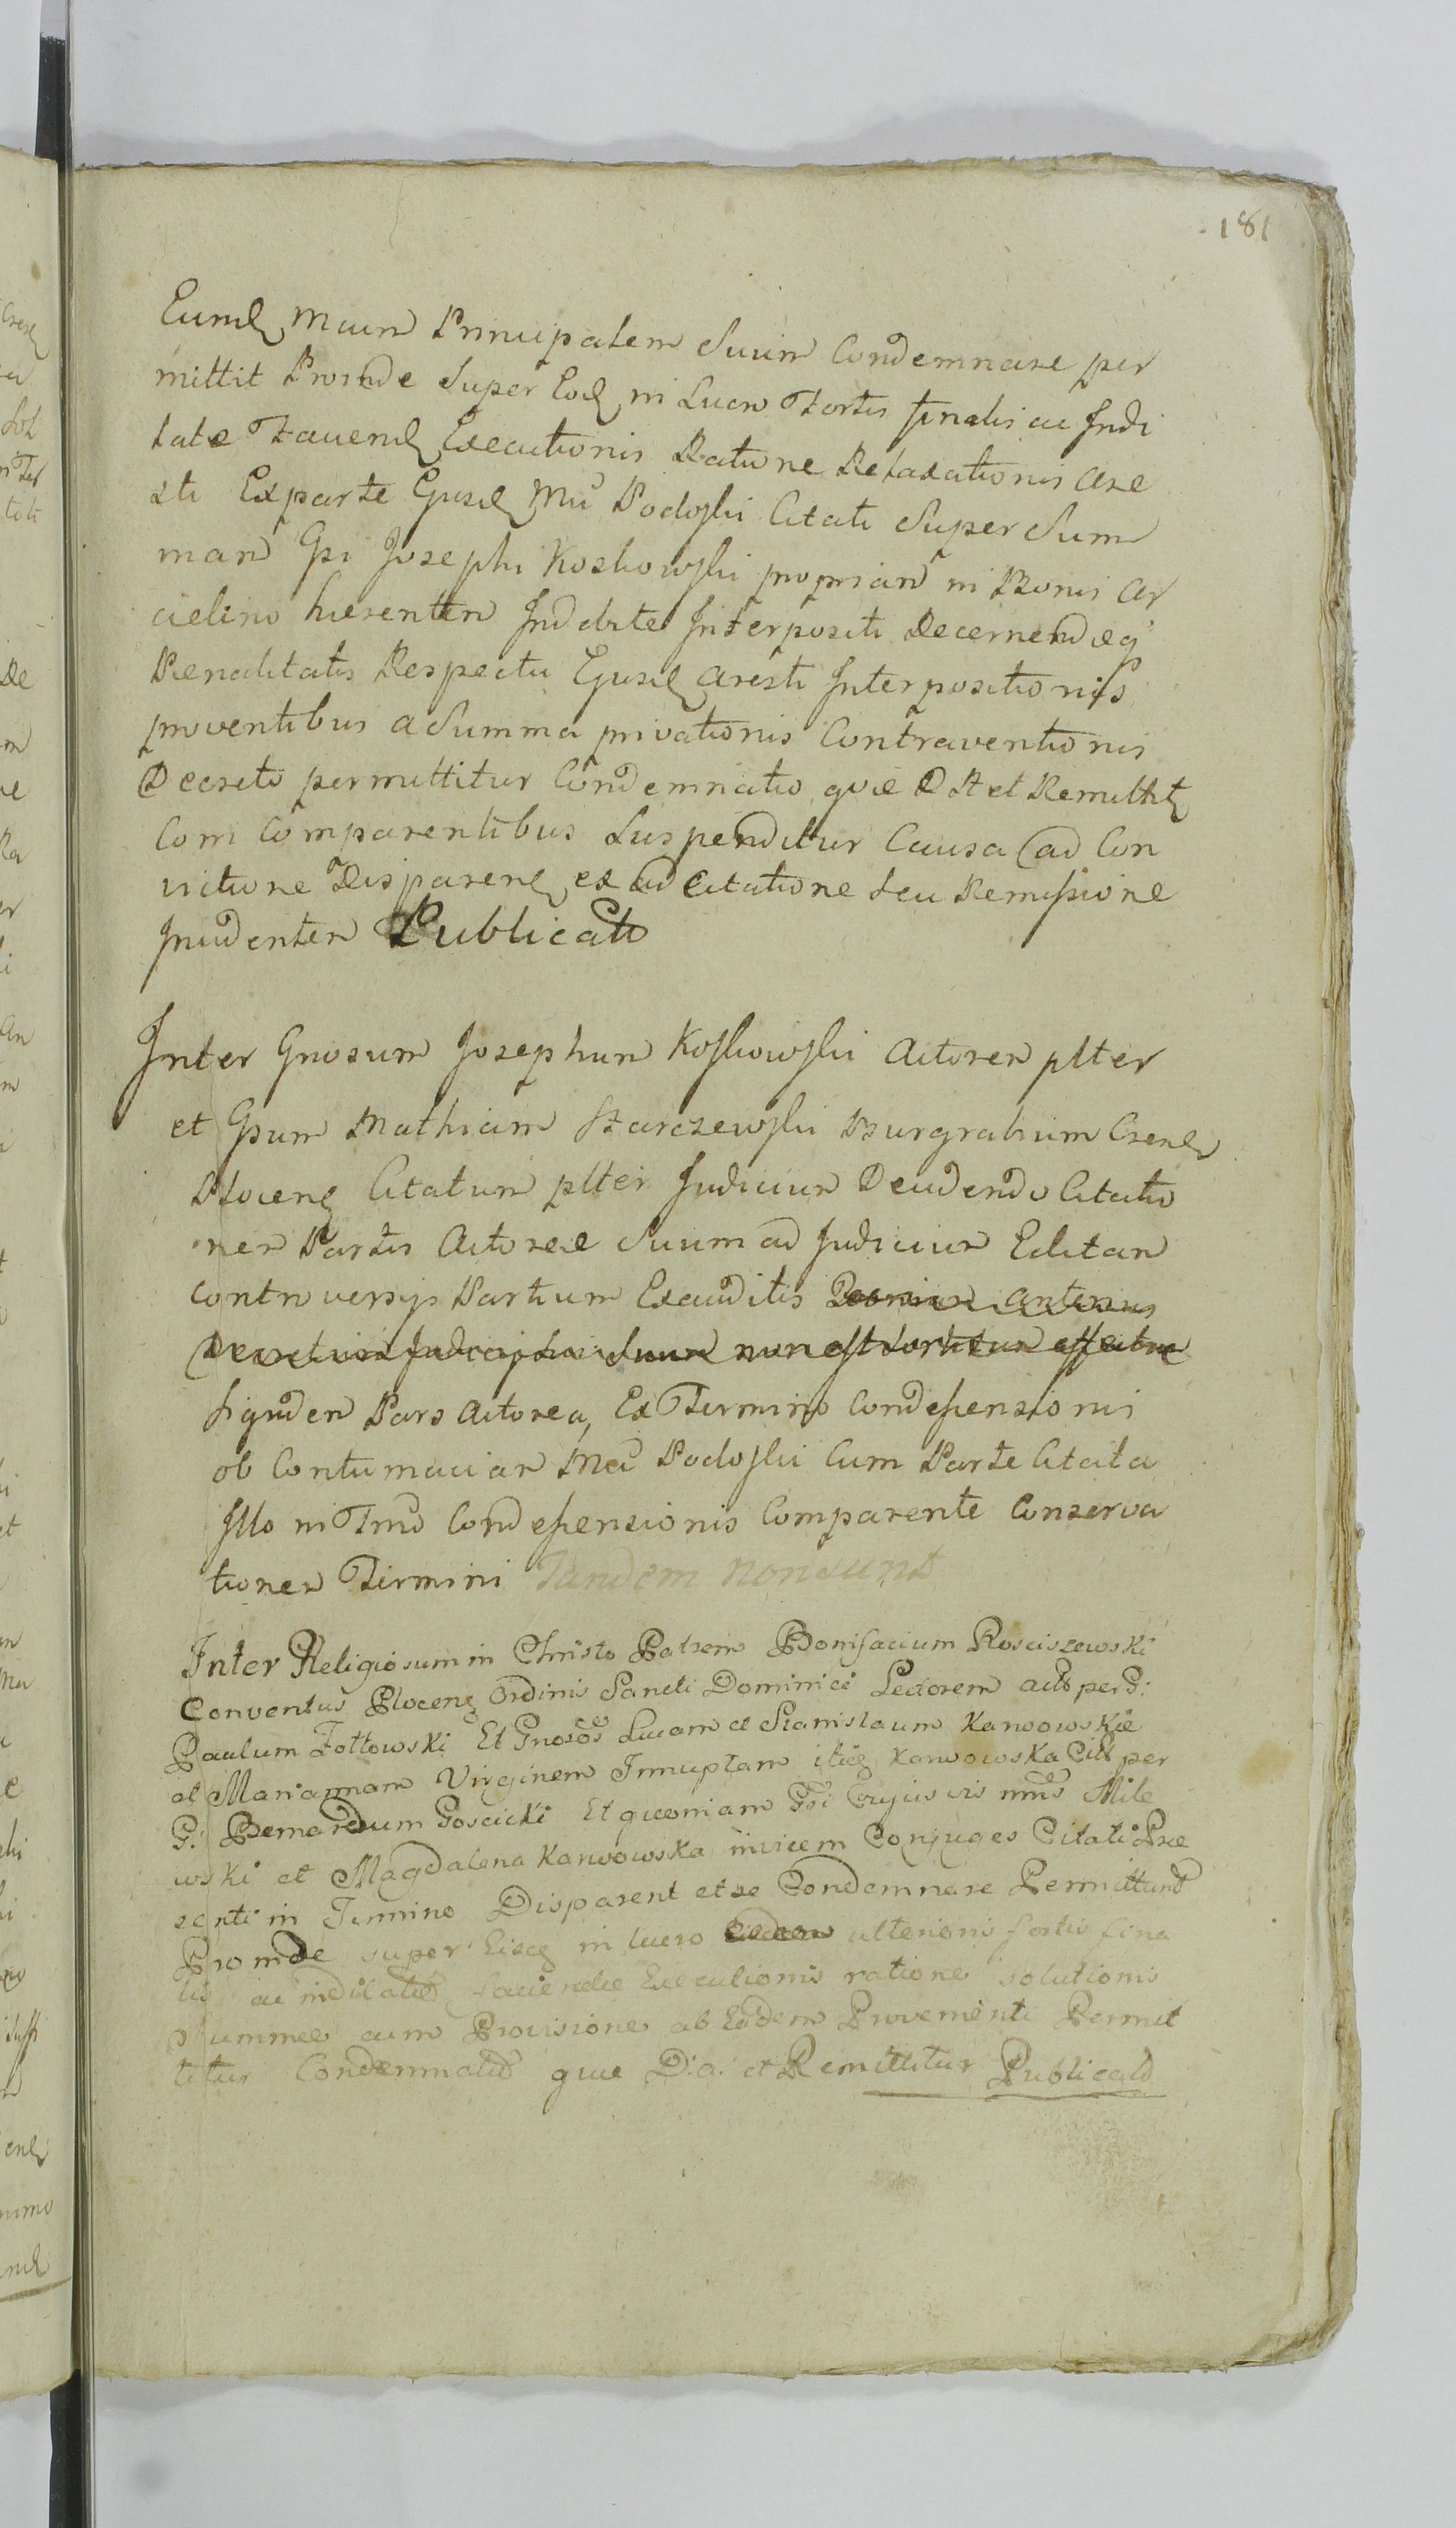 181
Eund Mcum Principalem Suum Condemnare per
mittit Proinde Super Eod in Lucro Fortis finalis ac Indi
latæ Faciend Executionis Ratione Relaxationis Are
sti Ex parte Ejusd Mci Podoski Citati Super Sum
mam Gsi Josephi Koskowski propriam in Bonis Ar
cielino hærentem Indebite Interpositi Decernendæq
Pænalitatis Respectu Ejusd Aresti Interpositionis
proventibus a Summa privationis Contraventionis
Decreto permittitur Condemnatio quæ D A et Remittit
Com Comparentibus Suspenditur Causa ad Con
victione Disparen ex ad Citatione seu Remissione
Incidentem Publicat
Inter Gnosum Josephum Koskowski Actorem plter
et Gsum Mathiam Starczewski Burgrabium Csen
Plocen Citatum plter Judicium Decidendo Citatio
nem Partis Actoreæ Suum ad Judicium Editam
Controversijs Partium Exauditis
non est sortitum effectum
siquidem Pars Actorea, Ex Termino Condefensionis
ob Contumaciam Mci Podoski Cum Parte Citata
Illo in Tmo Condefensionis Comparente Conserva
tionem Termini Tandem non sunt
Inter Religiosum in Christo Patrem Bonifacium Rosciszewski
Conventus Plocen Ordinis Sancti Dominici Lectorem act per G:
Paulum Zoltowski Et Gnosos Lucam et Stanislaum Karwowskie
et Mariannam Virginem Innuptam itid Karwowska Citt per
G: Bernardum Goscicki Et quoniam Gsi Cujusvis nnis Mile
wski et Magdalena Karwowska invicem Conjuges Citati Præ
senti in Termino Disparent et se Condemnare Permittunt
Proinde super Eisq in lucro ulterioris fortis fina
lis ac indilatæ faciendæ Executionis ratione solutionis
Summæ cum Provisione ab Eadem Provenienti Permit
titur Condemnatio quæ D: a: et Remittitur Publicat